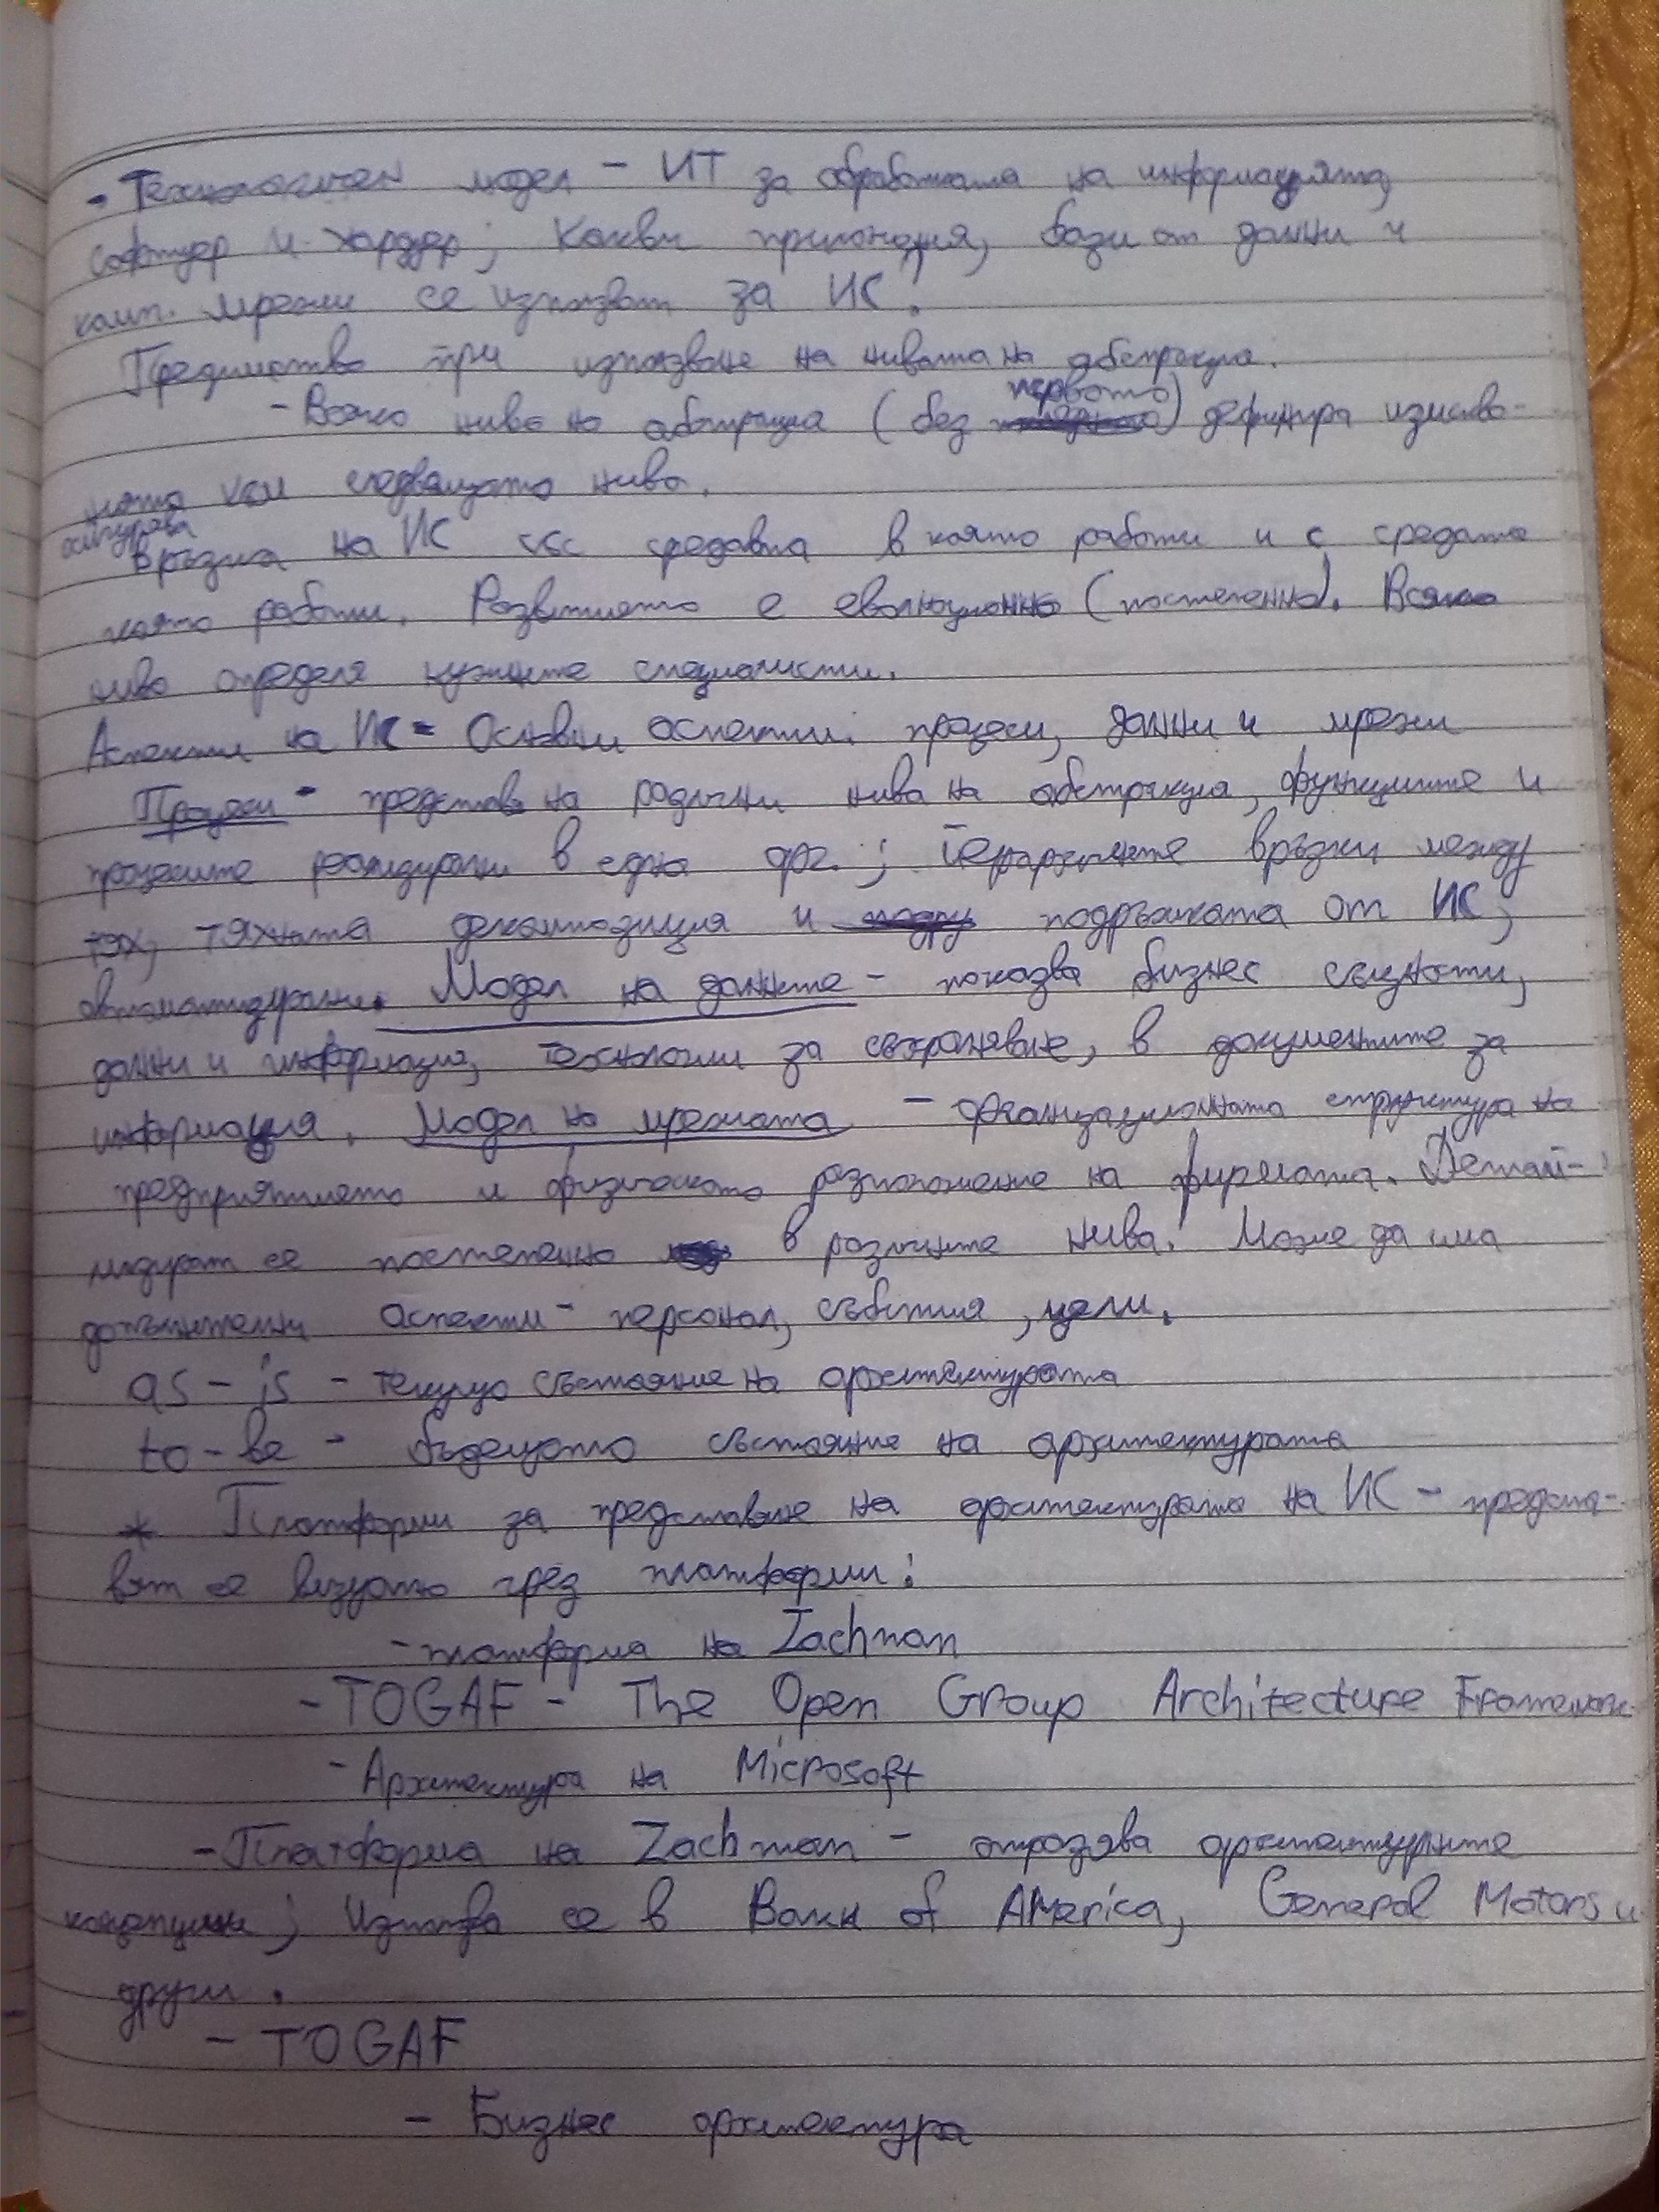 - Технологичен модел - ИТ за обработката на информацията,
софтуер и хардуер; Какви приложения, бази от данни и
комп. мрежи се използват за ИС.
Предимство при използване на нивата на абстракция.
- Всяко ниво на абстракция (без първото) дефинира изисква-
нята към следващото ниво.
осигурява
Връзка на ИС със средата в която работи и с средата
която работи. Развитието е еволюционно (постепенно). Всяко
ниво определя нужните специалисти.
Аспекти на ИС - Основни аспекти: процеси, данни и мрежи
Процеси - представя на различни нива на абстракция, функциите и
процесите реализирани в една орг.; йерархичните връзки между
тях, тяхната декомпозиция и подръжката от ИС,
автоматизирани. Модел на данните - показва бизнес същности,
данни и информация, технологии за съхраняване, в документите за
информация. Модел на мрежата - организационната структура на
предприятието и физическото разположение на фирмата. Детай-
лизират се постепенно в различните нива. Може да има
допълнителни аспекти - персонал, събития, цели.
as - is - текущо състояние на архитектурата
to - be - бъдещото състояние на архитектурата
* Платформи за представяне на архитектурата на ИС - предста-
вят се визуално чрез платформи:
- платформа на Zachman
- TOGAF - The Open Group Architecture Framework
- Архитектура на Microsoft
- Платформа на Zachman - отразява архитектурните
концепции; Използва се в Bank of America, General Motors и
други.
- TOGAF
- Бизнес архитектура